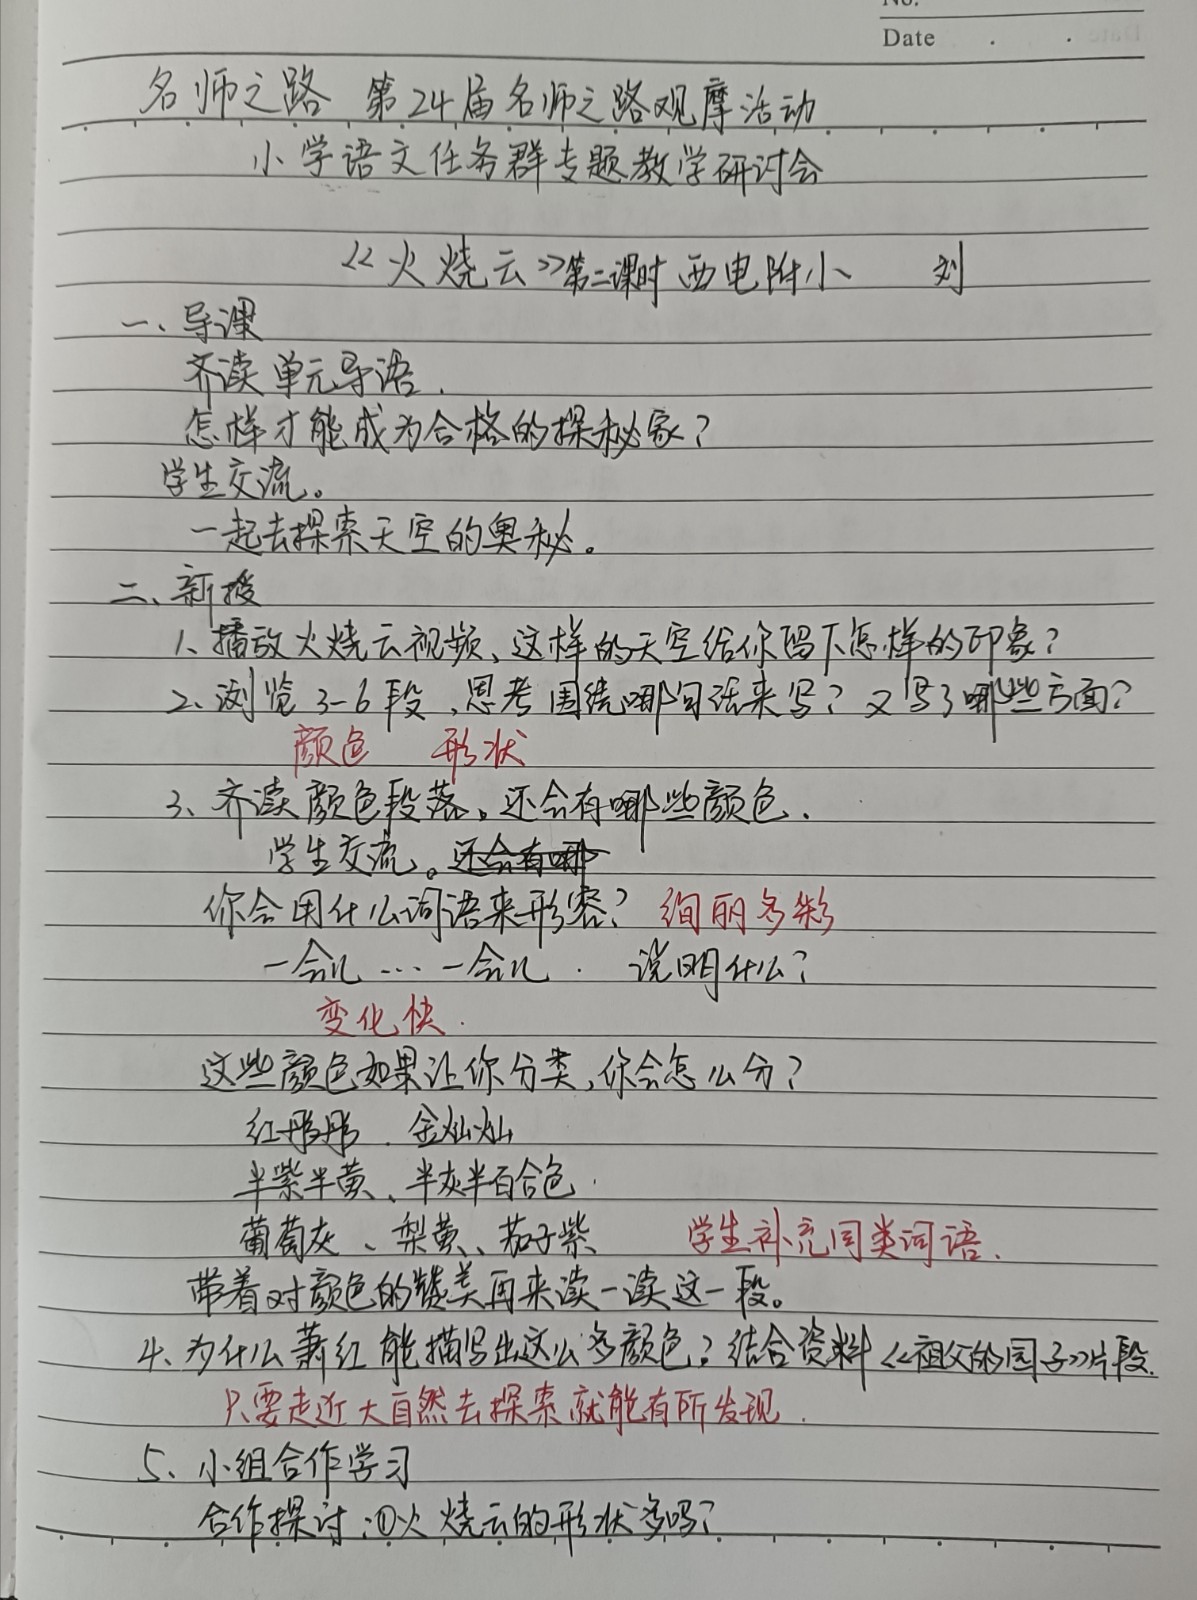 No.
Date . .
名师之路 第24届名师之路观摩活动
小学语文任务群专题教学研讨会
《火烧云》第二课时 西电附小 刘
一、导课
齐读单元导语.
怎样才能成为合格的探秘家?
学生交流。
一起去探索天空的奥秘。
二、新授
1、播放火烧云视频、这样的天空给你留下怎样的印象?
2、浏览3-6段,思考围绕哪句话来写?又写了哪些方面?
颜色 形状
3、齐读颜色段落。还会有哪些颜色.
学生交流。还会有哪
你会用什么词语来形容? 绚丽多彩
一会儿…一会儿. 说明什么?
变化快.
这些颜色如果让你分类,你会怎么分?
红彤彤. 金灿灿
半紫半黄、半灰半百合色.
葡萄灰、梨黄、茄子紫 学生补充同类词语.
带着对颜色的赞美再来读一读这一段。
4、为什么萧红能描写出这么多颜色?结合资料《祖父的园子》片段.
只要走近大自然去探索就能有所发现.
5、小组合作学习
合作探讨:①火烧云的形状多吗?